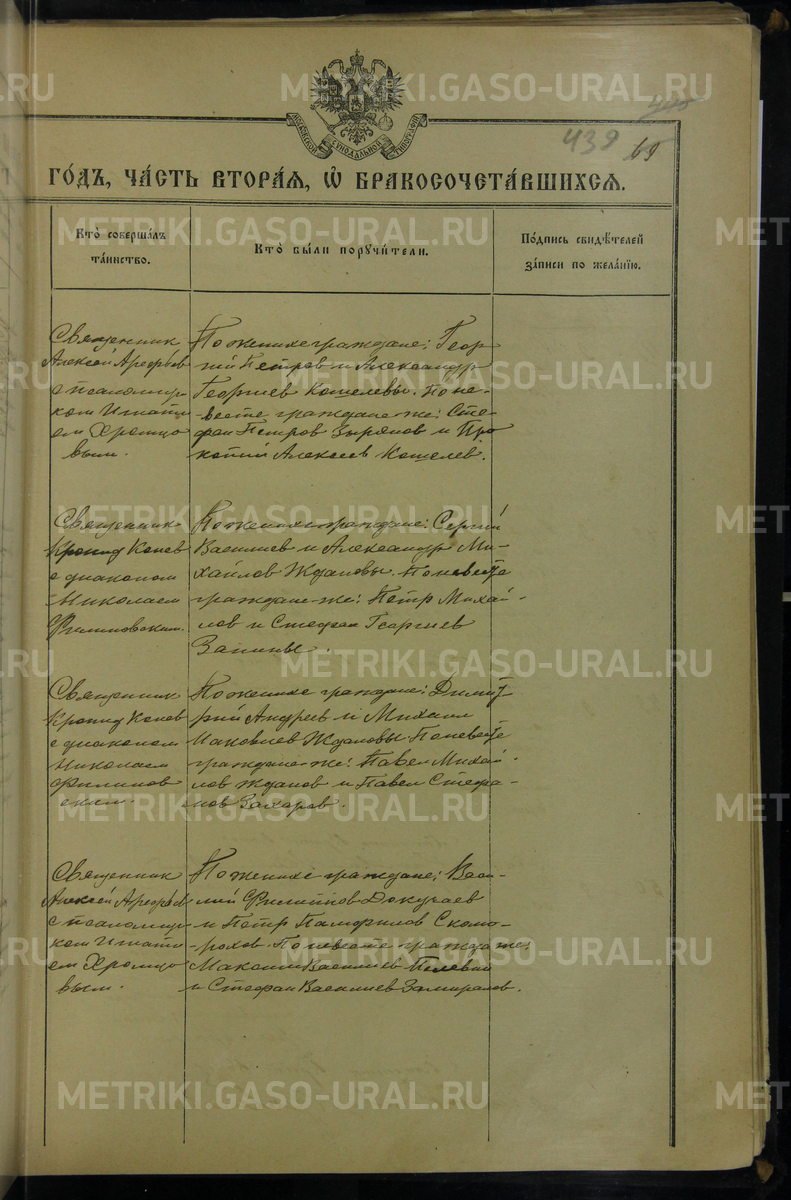 METRIKI.GASO-URAL.RU
МОСКОВСКОЙ СѴНОДАЛЬНОЙ ТИПОГРАФІИ
439
69
ГО́ДЪ, ЧА́СТЬ ВТОРА́Ѧ, Ѽ БРАКОСОЧЕТА́ВШИХСѦ.
Кто̀ соверша́лъ
та́инство.
Кто̀ бы́ли порꙋчи́тели.
По́дпись свидѣ́телей
за́писи по жела́нїю.
Священник
Алексей Арефьев
с псаломщи
ком Игнати
ем Хромцо
вым.
По женихе граждане: Геор-
гий Петров и Александр
Георгиев Кошелевы. По не-
весте граждане же: Сте-
фан Петров Зырянов и Про
копий Алексеев Кошелев.
Священник
Кронид Конев
с диаконом
Николаем
Филиповским.
По женихе граждане: Сергий
Василиев и Александр Ми-
хайлов Ждановы. По невесте
граждане же: Петр Михай-
лов и Стефан Георгиев
Занины.
Священник
Кронид Конев
с диаконом
Николаем
Филипов
ским.
По женихе граждане: Димит
рий Андреев и Михаил
Иаковлев Ждановы. По невесте
граждане же: Павел Михай-
лов Жданов и Павел Стефа-
нов Захаров.
Священник
Алексей Арефьев
с псаломщи
ком Игнати
ем Хромцо
вым.
По женихе граждане: Васи-
лий Филиппов Докучаев
и Петр Памфилов Скомо-
рохов. По невесте граждане:
Максим Василиев Полевый
и Стефан Василиев Замиралов.